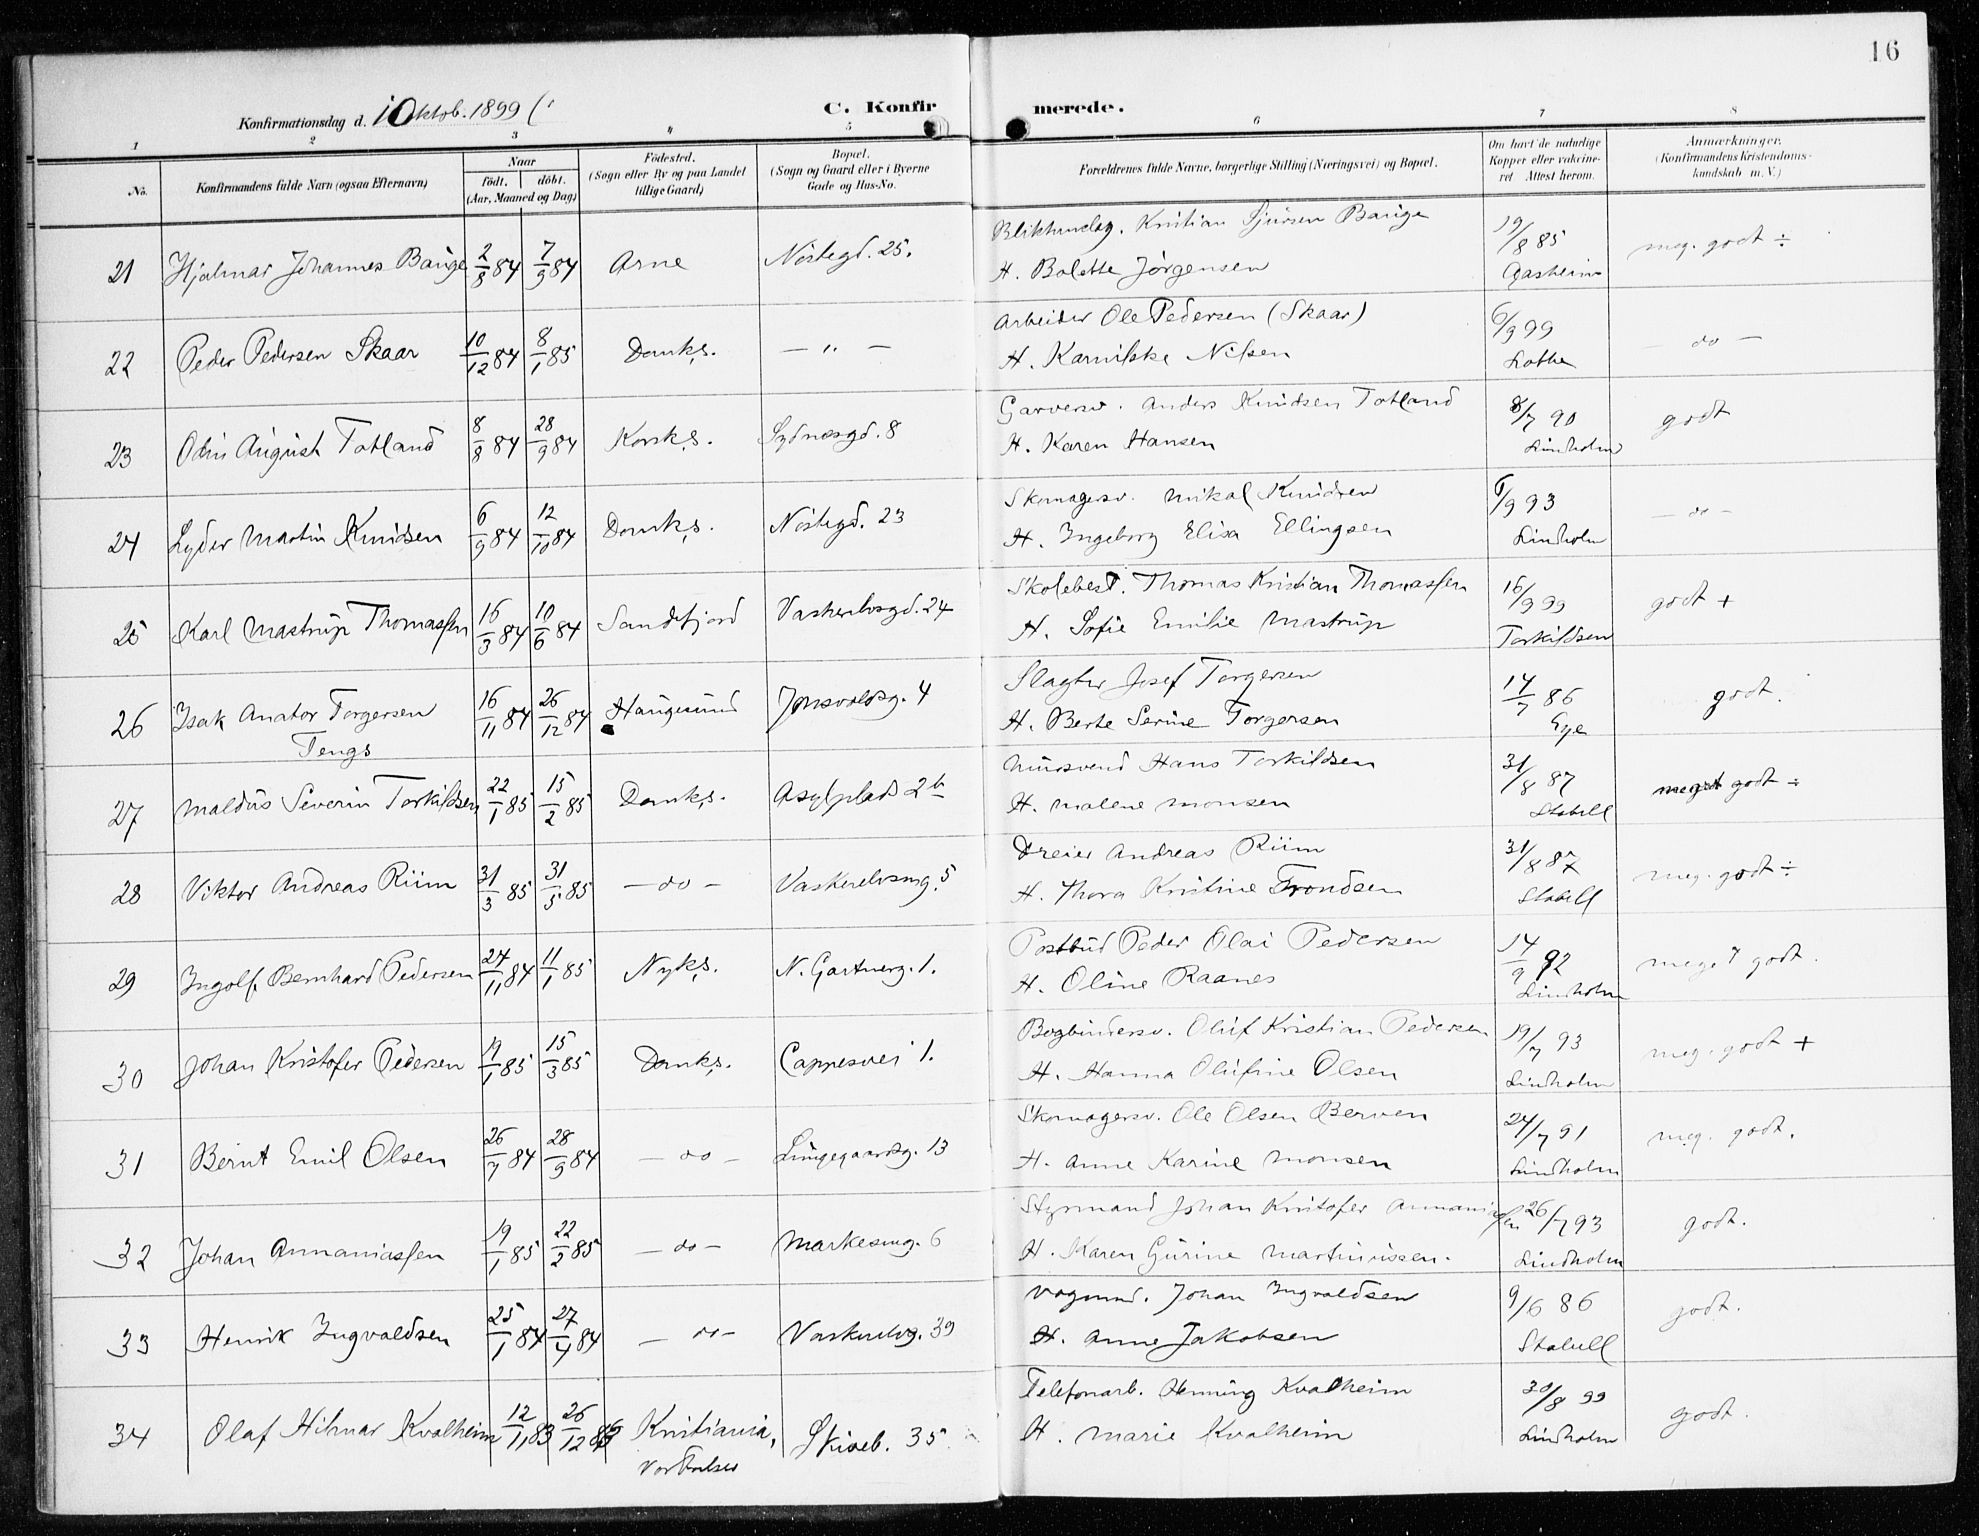 16
Konfirmationsdag d. 1 Oktob. 1899 (
C. Konfirmerede.
1 2 3 4 5 6 7 8
No.
Konfirmandens fulde Navn (ogsaa Efternavn)
Naar
født. døbt.
(Aar, Maaned og Dag)
Fødested.
(Sogn eller By og paa Landet
tillige Gaard)
Bopæl.
(Sogn og Gaard eller i Byerne
Gade og Hus-No.
Forældrenes fulde Navne, borgerlige Stilling (Næringsvei) og Bopæl.
Om havt de naturlige
Kopper eller vakcine-
ret Attest herom.
Anmærkninger.
(Konfirmandens Kristendoms-
kundskab m. V.)
21 Hjalmar Johannes Bauge 2/8 84 7/9 84 Arne Nöstegd. 25. Kristian Sjursen Bauge 19/8 85 meg. godt ÷
H. Bolette Jørgensen Gasheim
22 Peder Pedersen Skaar 10/12 84 8/1 85 Domks. — " — Arbeider Ole Pedersen (Skaar) 6/9 99 — do —
H. Kamilske Nilsen Lothe
23 Odin August Totland 8/8 84 28/9 84 Korsks. Sydnæsgd. 8 Garversv. Anders Knudsen Totland 8/7 90 godt
H. Karen Hansen Lindholm
24 Lyder Martin Knudsen 6/9 84 12/10 84 Domks. Nöstegd. 23 Skomagersv. Mikal Knudsen 6/9 93 — do —
H. Ingeborg Elisa Ellingsen Lindholm
25 Karl Mastrup Thomassen 16/3 84 10/6 84 Sandefjord Vaskerelvsgd. 24 Skolebest. Thomas Kristian Thomassen 16/9 99 godt +
H. Sofie Emilie Mastrup Torkildsen
26 Isak Anator Torgersen 16/11 84 26/12 84 Haugesund Jonsvoldsg. 4 Slagter Josef Torgersen 14/7 86 godt.
Tengs H. Berte Serine Torgersen Eye
27 Maldus Severin Torkildsen 22/1 85 15/2 85 Domks. Asylplads 2b Mursvend Hans Torkildsen 31/8 87 meget godt ÷
H. Malene Monsen Stabell
28 Viktor Andreas Riim 31/3 85 31/5 85 — do — Vaskerelvsmg. 5 Dreier Andreas Riim 31/8 87 meg. godt ÷
H. Thora Kristine Trondsen Stabell
29 Ingolf Bernhard Pedersen 24/11 84 11/1 85 Nyks. N. Gartnerg. 1. Postbud Peder Olai Pedersen 14/9 92 meg. godt.
H. Oline Raanes Lindholm
30 Johan Kristofer Pedersen 19/1 85 15/3 85 Domks. Cappesvei 1. Bogbindersv. Oluf Kristian Pedersen 19/7 93 meg. godt +
H. Hanna Olufine Olsen Lindholm
31 Bernt Emil Olsen 26/7 84 28/9 84 — do — Lungegaardsg. 13 Skomagersv. Ole Olsen Berven 24/7 91 meg. godt.
H. Anne Karine Monsen Lindholm
32 Johan Annaniassen 19/1 85 22/2 85 — do — Markesmg. 6 Styrmand Johan Kristofer Annaniassen 26/7 93 godt.
H. Karen Gurine Martinussen. Lindholm
33 Henrik Ingvaldsen 25/1 84 27/4 84 — do — Vaskerelvg. 39 Vognmd. Johan Ingvaldsen 9/6 86 godt.
H. Anne Jakobsen Stabell
34 Olaf Hilmar Kvalheim 12/11 83 26/12 83 Kristiania, Skiveb. 35 Telefonarb. Henning Kvalheim 30/8 99 godt.
Vor Frelser H. Marie Kvalheim Lindholm